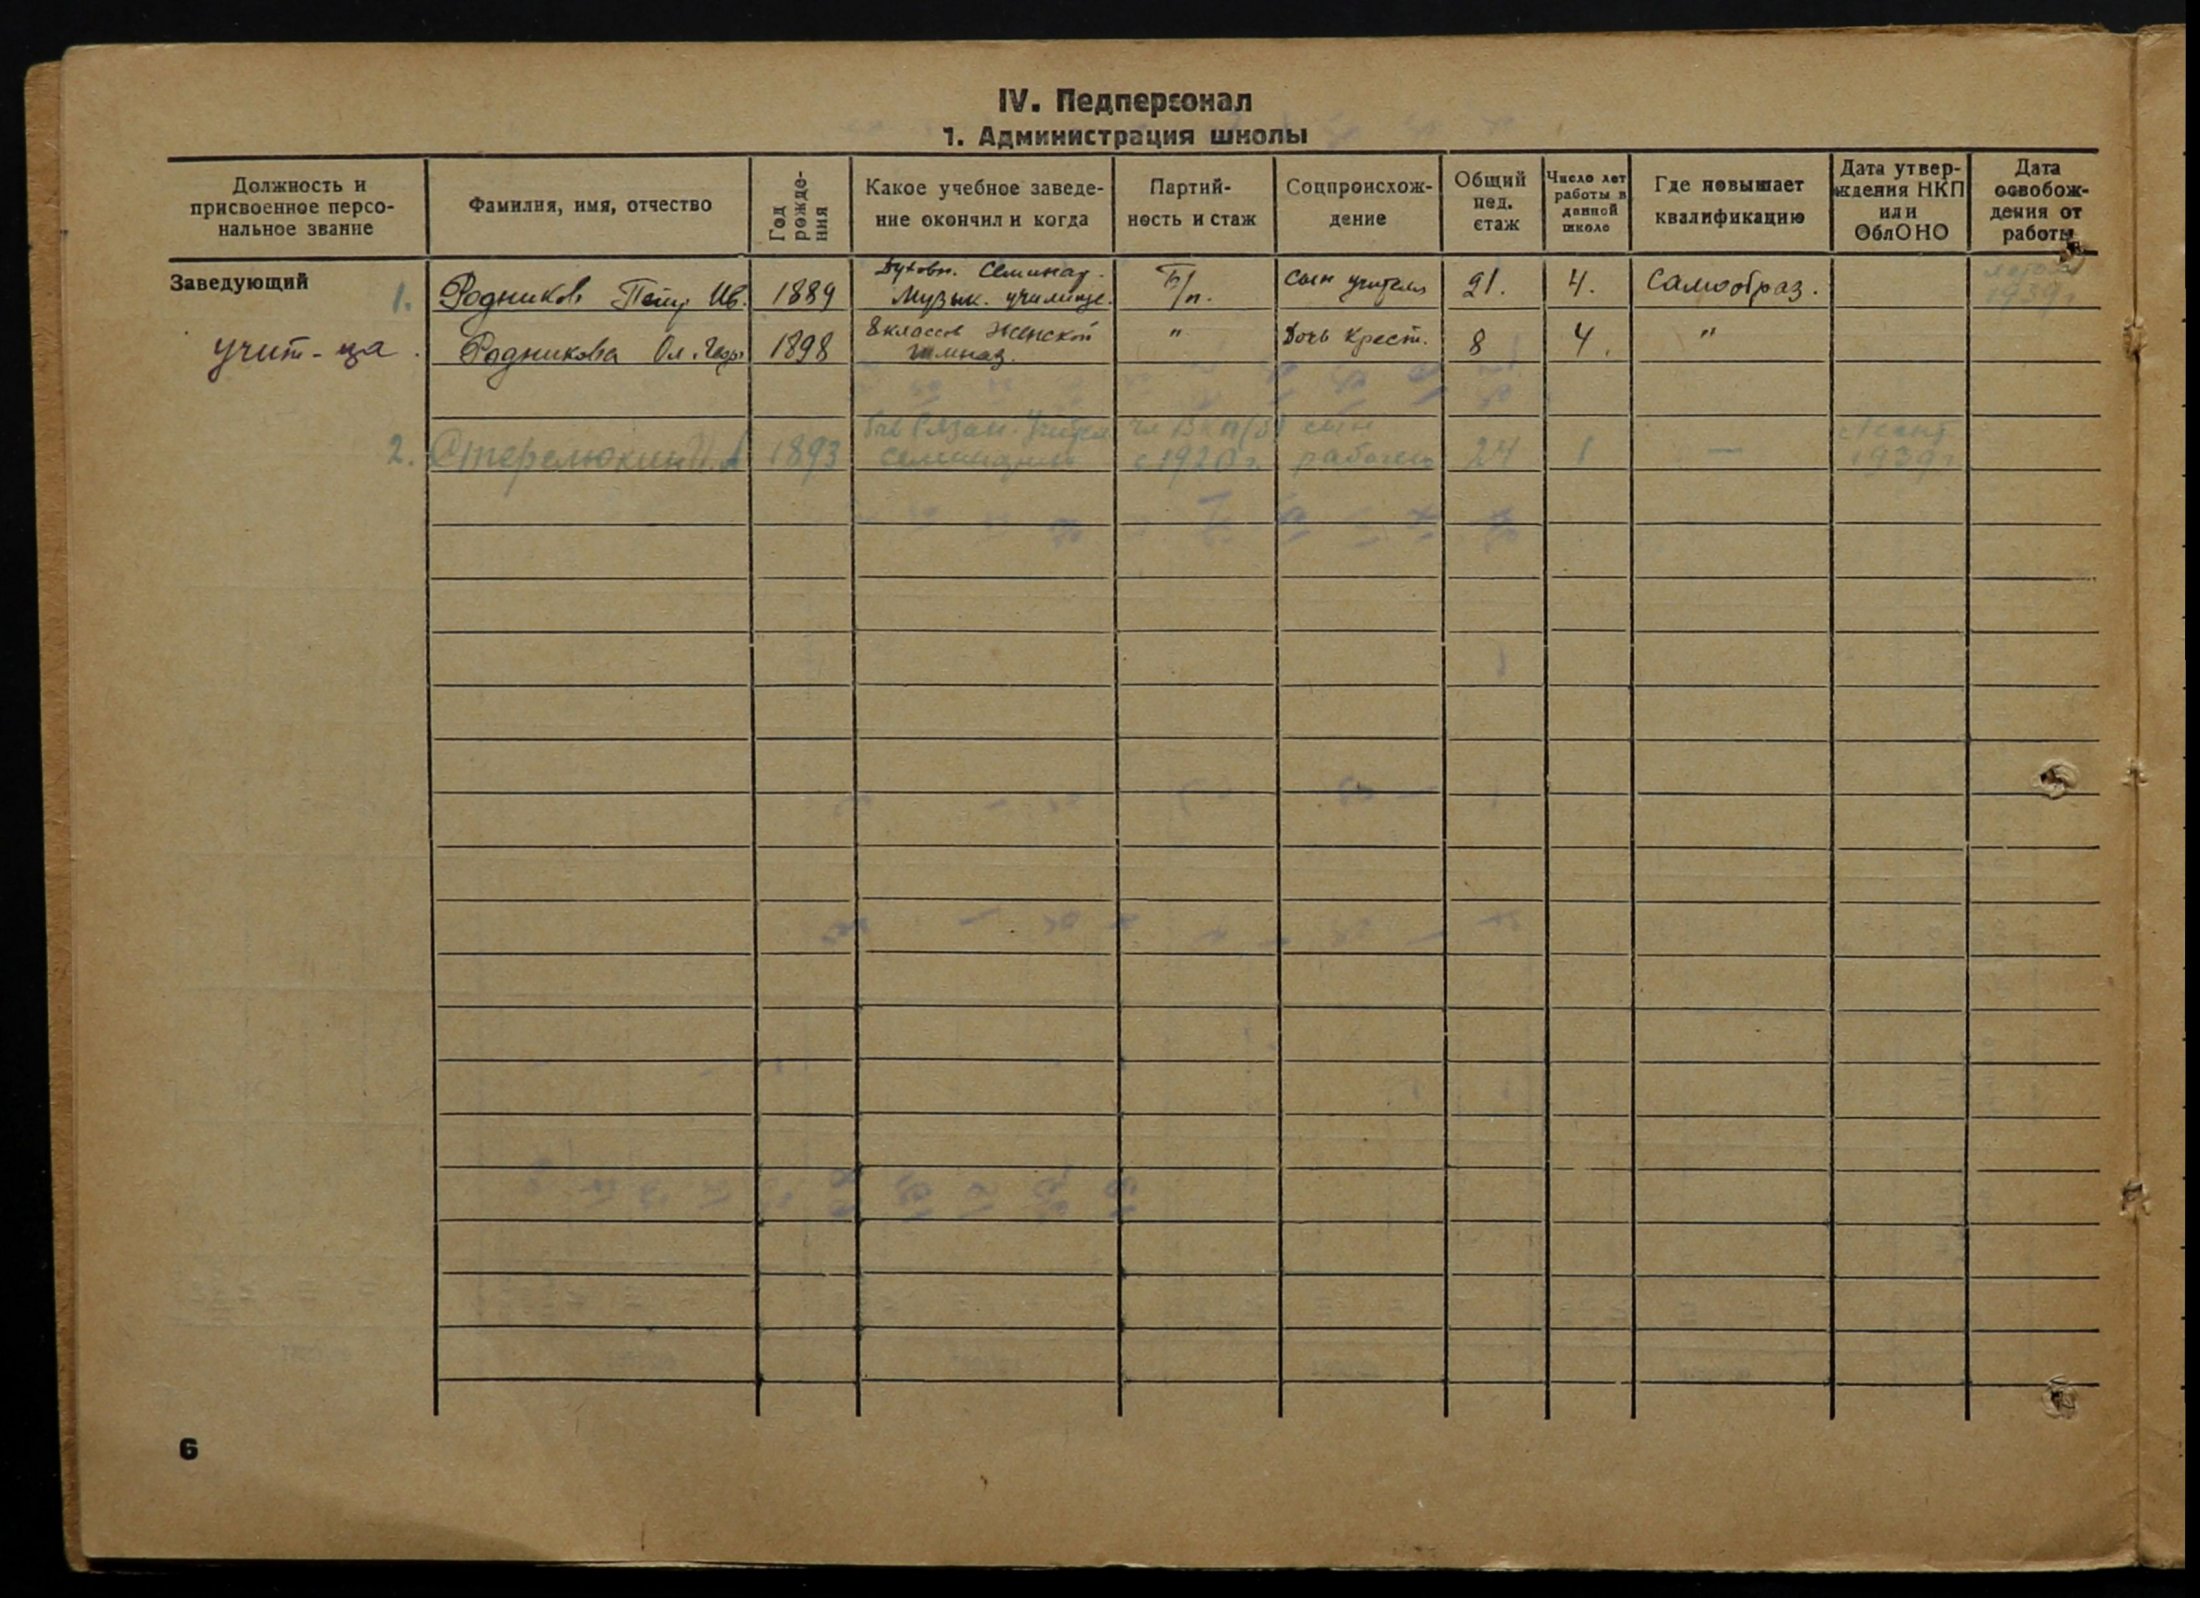 IV. Педперсонал
1. Администрация школы
Должность и присвоенное персо-нальное звание
Фамилия, имя, отчество
Год рожде-ния
Какое учебное заведе-ние окончил и когда
Партий-ность и стаж
Соцпроисхож-дение
Общий пед. стаж
Число лет работы в данной школе
Где повышает квалификацию
Дата утвер-ждения НКП или ОблОНО
Дата освобож-дения от работы
Заведующий 1. Родников Петр Ив. 1889 Духовн. Семинар. Музык. училище. Б/п. Сын учителя 21. 4. Самообраз. 1939 г
учит-ца. Родникова Ол. 1898 8 классов Женской Гимназ. " Дочь Крест. 8 4. "
2. 1893 Рязан. семинарию чл ВКП(б) с 1920 г. сын рабочего 24 1 — 1939 г
6